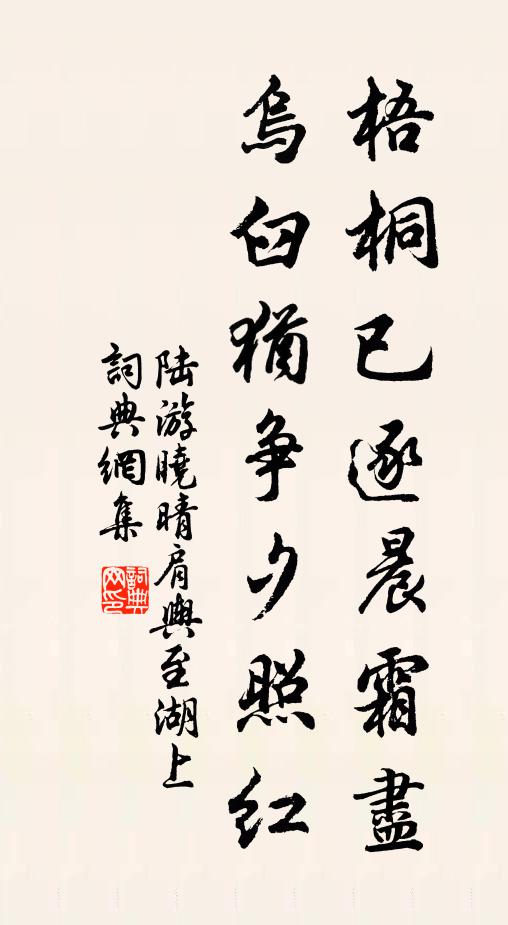 梧桐已逐晨霜盡
烏臼猶爭夕照紅
陸游曉晴肩輿至湖上
詞典網集
詞典網印